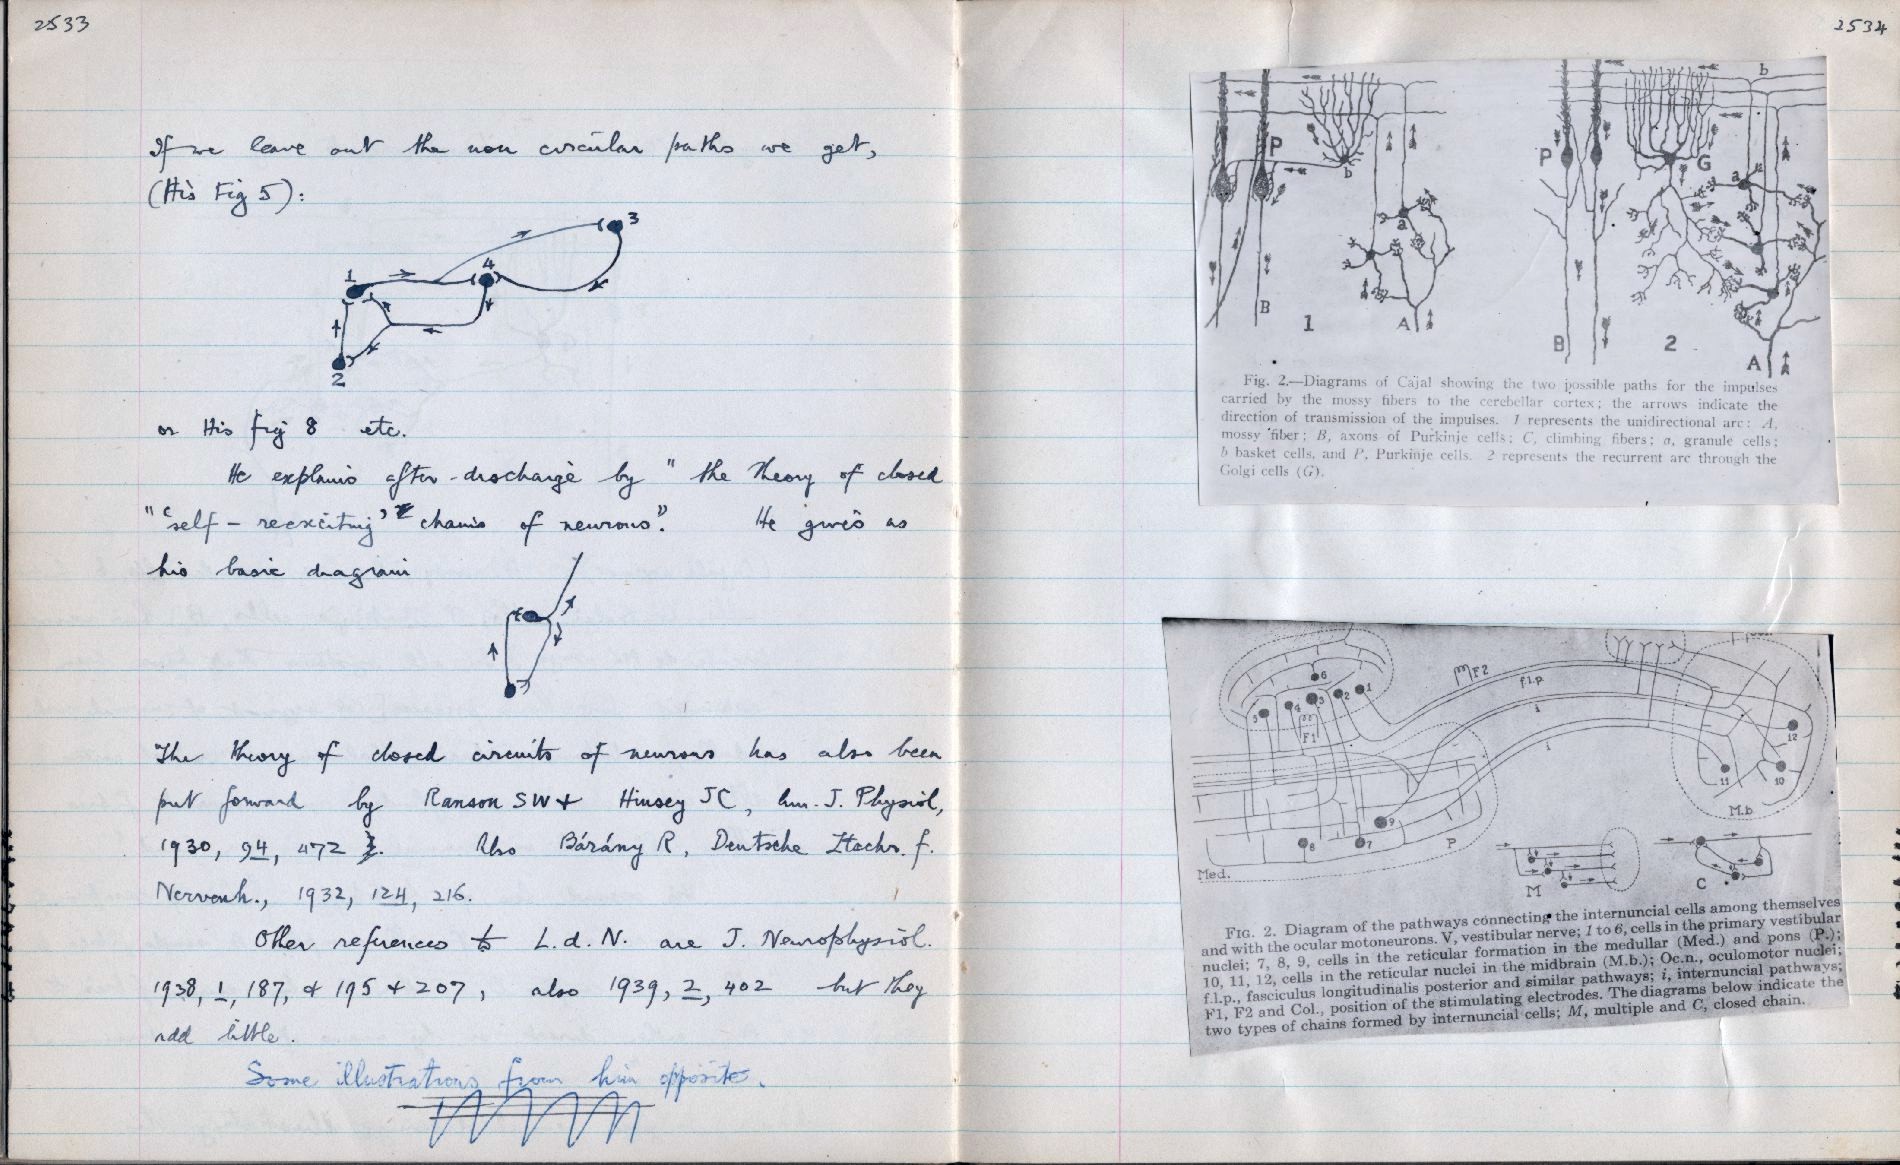 2533
If we leave out the non circular paths we get,
(His Fig 5):
3
4
1
2
or His fig 8 etc.
He explains after-discharge by " the theory of closed
"'self-reexciting' chains of neurons". He gives as
his basic diagram
The theory of closed circuits of neurons has also been
put forward by Ranson SW + Hinsey JC, Am. J. Physiol,
1930, 94, 472. Also Bárány R, Deutsche Ztschr. f.
Nervenh., 1932, 124, 216.
Other references to L.d.N. are J. Neurophysiol.
1938, 1, 187, + 195 + 207, also 1939, 2, 402 but they
add little.
Some illustrations from him opposite.
2534
b
P
b
a
B
1
A
P
G
a
B
2
A
Fig. 2.—Diagrams of Cajal showing the two possible paths for the impulses
carried by the mossy fibers to the cerebellar cortex; the arrows indicate the
direction of transmission of the impulses. 1 represents the unidirectional arc: A,
mossy fiber; B, axons of Purkinje cells; C, climbing fibers; a, granule cells;
b basket cells, and P, Purkinje cells. 2 represents the recurrent arc through the
Golgi cells (G).
6
5 4 3 2 1
F1
F2
f.l.p.
i
i
12
11
10
M.b
9
8
7
P
Med.
M
C
FIG. 2. Diagram of the pathways connecting the internuncial cells among themselves
and with the ocular motoneurons. V, vestibular nerve; 1 to 6, cells in the primary vestibular
nuclei; 7, 8, 9, cells in the reticular formation in the medullar (Med.) and pons (P.);
10, 11, 12, cells in the reticular nuclei in the midbrain (M.b.); Oc.n., oculomotor nuclei;
f.l.p., fasciculus longitudinalis posterior and similar pathways; i, internuncial pathways;
F1, F2 and Col., position of the stimulating electrodes. The diagrams below indicate the
two types of chains formed by internuncial cells; M, multiple and C, closed chain.